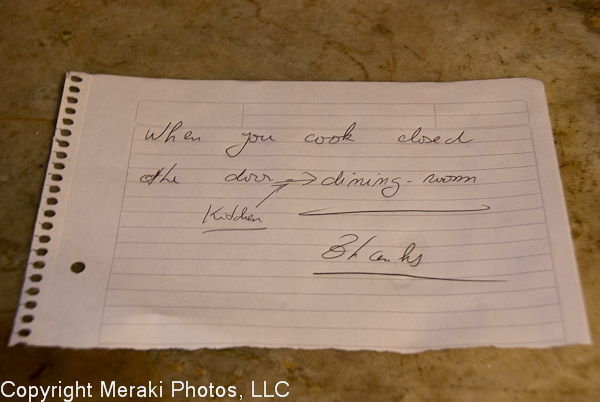 When you cook closed
the door → dining-room
Kitchen
Thanks
Copyright Meraki Photos, LLC